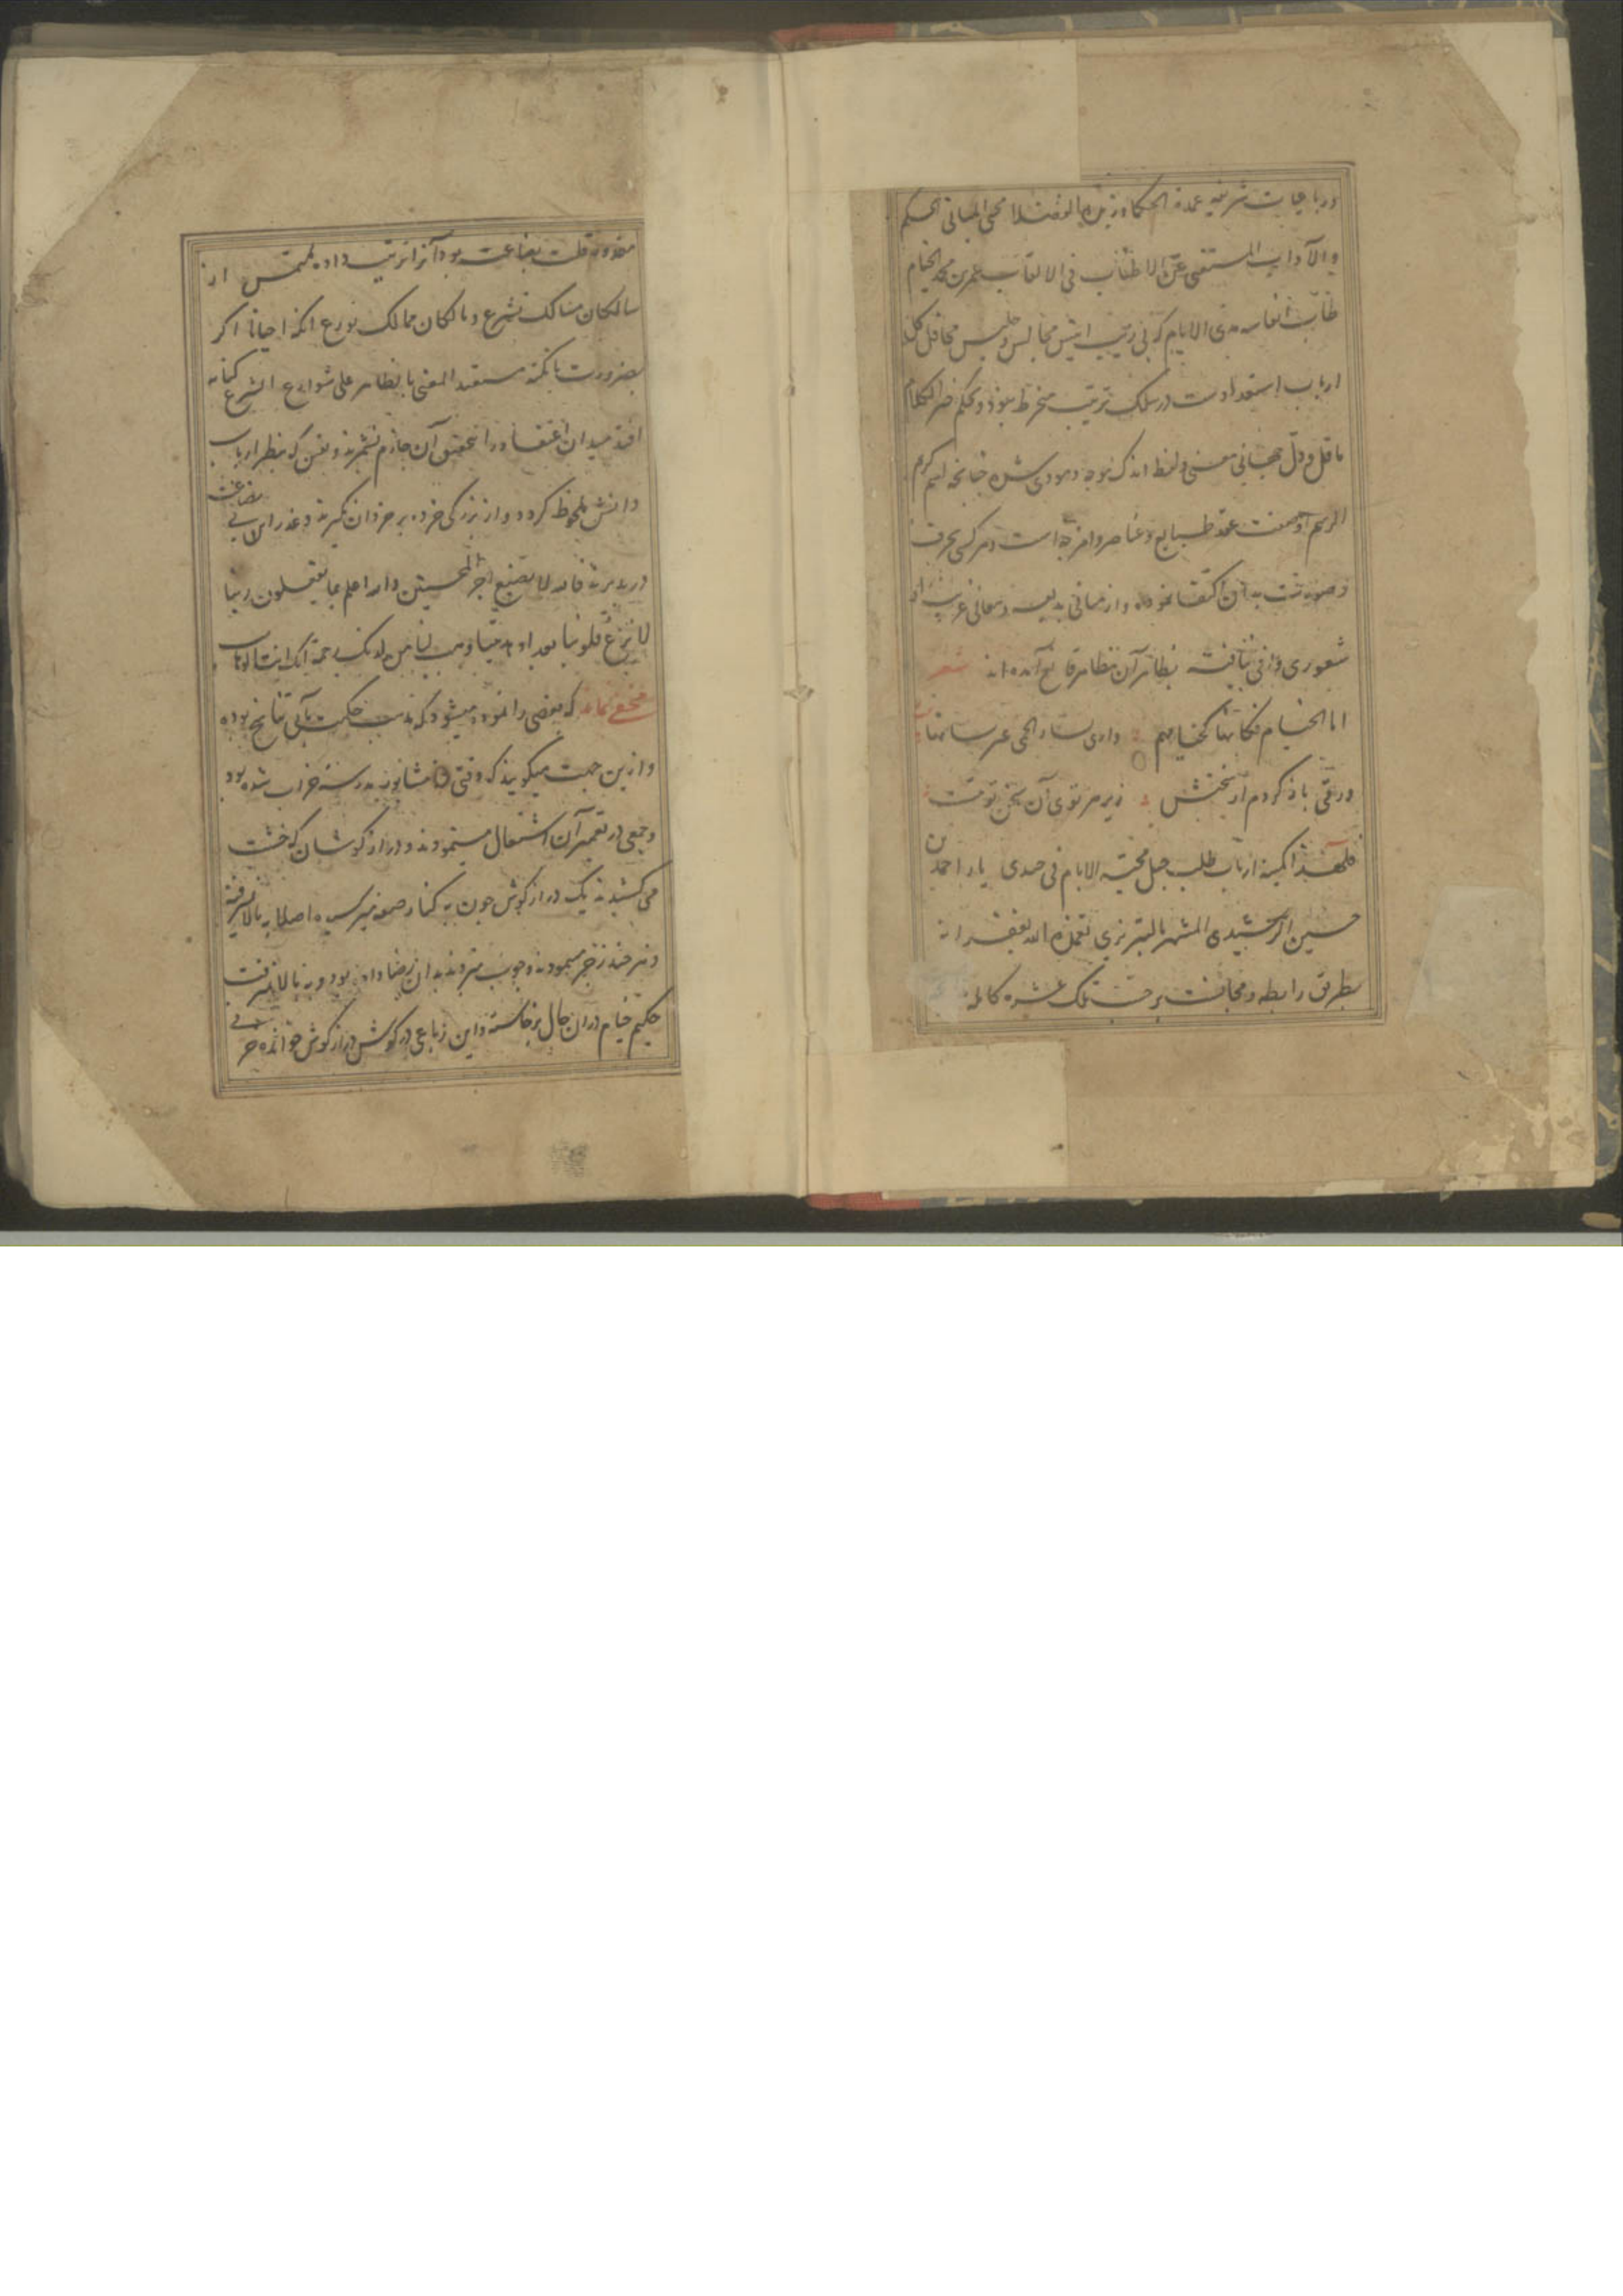 ورباعیات شریفه عمدة الحکما وزبدة الفضلا محیی المبانی الحکم
والآداب المستغنی عن الاطناب فی الالقاب عمر بن محمد الخیام
طاب انفاسه مدی الایام که بی ریب انیس مجالس و جلیس محافل کل
ارباب استعدادست در سلک ترتیب منخرط نبود و بحکم خیر الکلام
ما قل و دل جهانی معنی در لفظ اندک نموده چنانچه
طبایع و عناصر و امزجه است و هر کسی بحرف
و صورتست بدان اکتفا نموده و از مبانی بدیعه و معانی غریبه
شعوری وافی نیافته بظاهر آن بتظاهر قانع آمده‌اند شعر
اما الخیام فکانها کخیامهم واری نساء الحی غیر نسائها
ورقی باز کردم از سخنش زیر هر توی آن سخن تو تست
فلهذا کمینه ارباب طلب یار احمد بن
حسین الرشیدی المشتهر بالتبریزی تغمده الله بغفرانه
بطریق رابطه و مجانست برحسب تلک عشرة کامله
مقدور قلت بضاعت بود آنرا ترتیب داده ملتمس از
سالکان مسالک تشرع و مالکان ممالک تورع آنکه احیانا اگر
بضرورت نکته مستعبد المعنی بالظاهر علی شوارع الشرع
افتد میدان اعتقاد را تحقیق آن جازم نشمرند و بعین که بنظر ارباب
دانش ملحوظ کردد و از بزرگی خرده بر خردان نکیرند و عذر این بی بضاعت
در پذیرند فانه لا یضیع اجر المحسنین والله اعلم بما یفعلون ربنا
لا تزغ قلوبنا بعد اذ هدیتنا وهب لنا من لدنک رحمة انک انت الوهاب
مخفی نماند که بعضی را نموده میشود که مذهب حکمت مآبی تناسخ بوده
و ازین جهت میگویند که وقتی در نشابور مدرسه خراب شده بود
و جمعی در تعمیر آن اشتغال مینمودند و درازگوشان که خشت
می کشیدند یک درازگوش چون به کنار صفه میرسیده اصلا به بالا نمیرفته
و هر چند زجر مینمودند و چوب میزدند بدان رضا داده بود و به بالا نمیرفت
حکیم خیام در آن حال برخاسته و این رباعی در گوش درازگوش خوانده